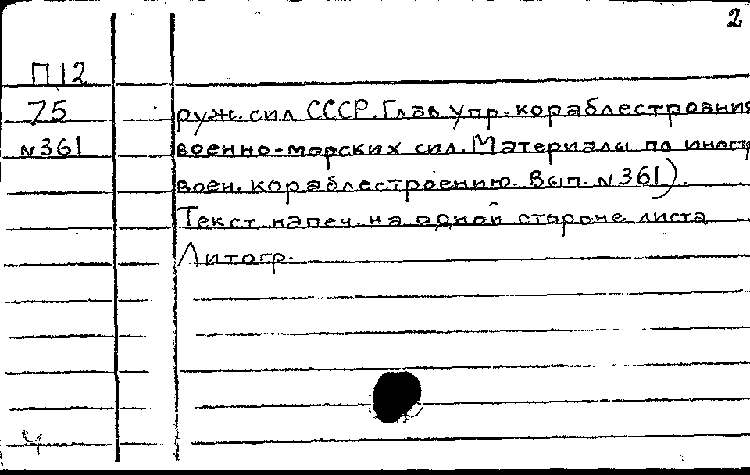 2
П12
75
N361
руж. сил СССР. Глав. упр. кораблестроения
военно-морских сил. Материалы по иностр
воен. кораблестроению. Вып. N361).
Текст напеч. на одной стороне листа
Литогр.
Ч